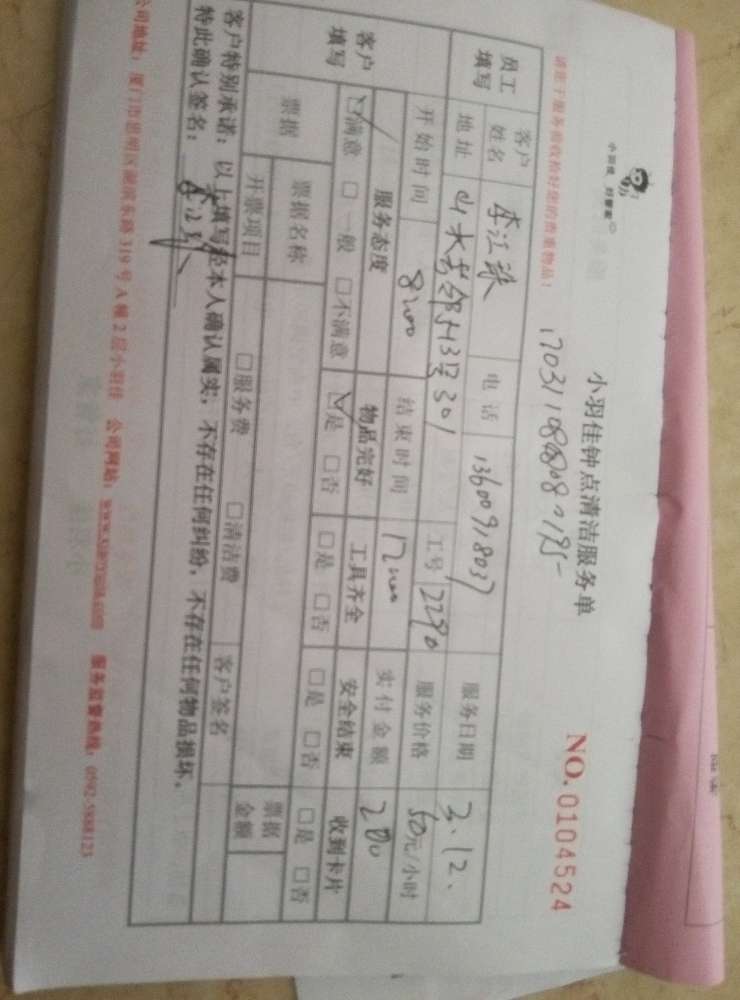 小羽佳 好管家
小羽佳钟点清洁服务单
NO.0104524
请您于服务前收拾好您的贵重物品！
员工填写 客户姓名 电话 13600918037 服务日期 3.12.
地址 301 工号 2290 服务价格 50元/小时
开始时间 8:00 结束时间 12:00 实付金额 200
客户填写 服务态度 物品完好 工具齐全 安全结束 收到卡片
☑满意 □一般 □不满意 ☑是 □否 □是 □否 □是 □否 □是 □否
票据 票据名称 票据金额
开票项目 □服务费 □清洁费 客户签名
客户特别承诺：以上填写经本人确认属实，不存在任何纠纷，不存在任何物品损坏。
特此确认签名：
公司地址：厦门市思明区湖滨东路319号A幢2层小羽佳 公司网站： 服务监督热线：0592-5888123